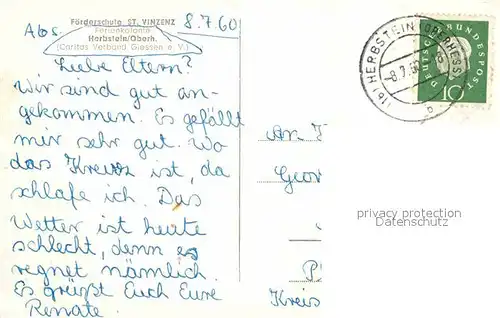 Förderschule ST. VINZENZ
Abs. 8.7.60
Ferienkolonie
Herbstein/Oberh.
(Caritas Verband Giessen e. V.)
Liebe Eltern?
Wir sind gut an-
gekommen. Es gefällt
mir sehr gut. Wo
das Kreuz ist, da
schlafe ich. Das
Wetter ist heute
schlecht, denn es
regnet nämlich.
Es grüßt Euch Eure
Renate.
(16) HERBSTEIN (OBERHESS)
-8.7.60
b
DEUTSCHE BUNDESPOST
10
An
Geor
Kreis
privacy protection
Datenschutz